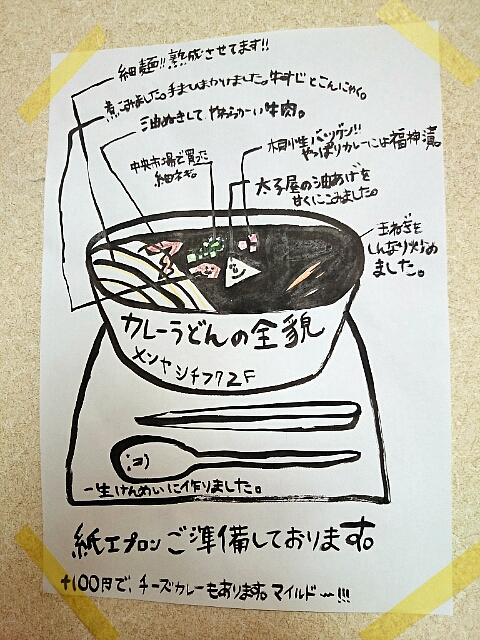 細麺!!熟成させてます!!
煮こみました。手まひまかけました。牛すじとこんにゃく。
油ぬきしてやわらかーい牛肉。
相性バツグン!!
やっぱりカレーには福神漬。
中央市場で買った
細ネギ。
太子屋の油あげを
甘くにこみました。
玉ねぎを
しんなり炒め
ました。
カレーうどんの全貌
メンヤシチフク2F
一生けんめいに作りました。
紙エプロンご準備しております。
+100円で、チーズカレーもあります。マイルド〜!!!